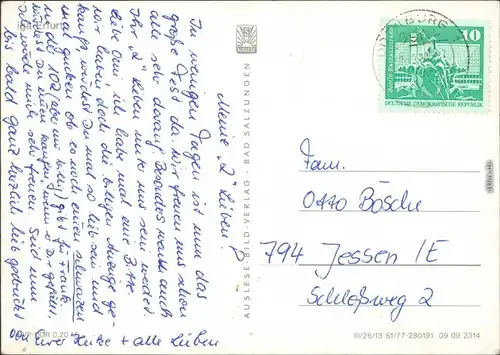 iga Erfurt
Meine "2" Lieben!
In wenigen Tagen ist nun das
große Fest da. Wir freuen uns schon
alle sehr darauf. Besonders
Ihr "2" Lieben
Liebe Omi, ich habe mal eine Bitte.
Wir haben doch die billigen Anzüge ge-
kauft, würdest Du mal so lieb sein und
mal gucken ob es noch einen schwarzen
in der 102 gibt für Frank
würdest Du mir kaufen, wenn
würde mich sehr freuen. Seid nun
bis bald ganz herzlich lieb gedrückt
von Eurer Heike + alle Lieben
AUSLESE
AUSLESE-BILD-VERLAG · BAD SALZUNGEN
10
DEUTSCHE DEMOKRATISCHE REPUBLIK
Fam.
Otto Bösche
794 Jessen /E
Schloßweg 2
III/26/13 S1/77-280191 09 09 2314